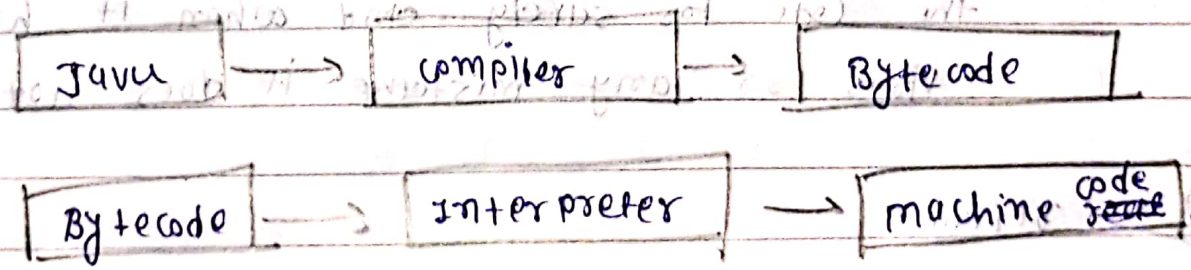 Java → compiler → Bytecode
Bytecode → Interpreter → machine code